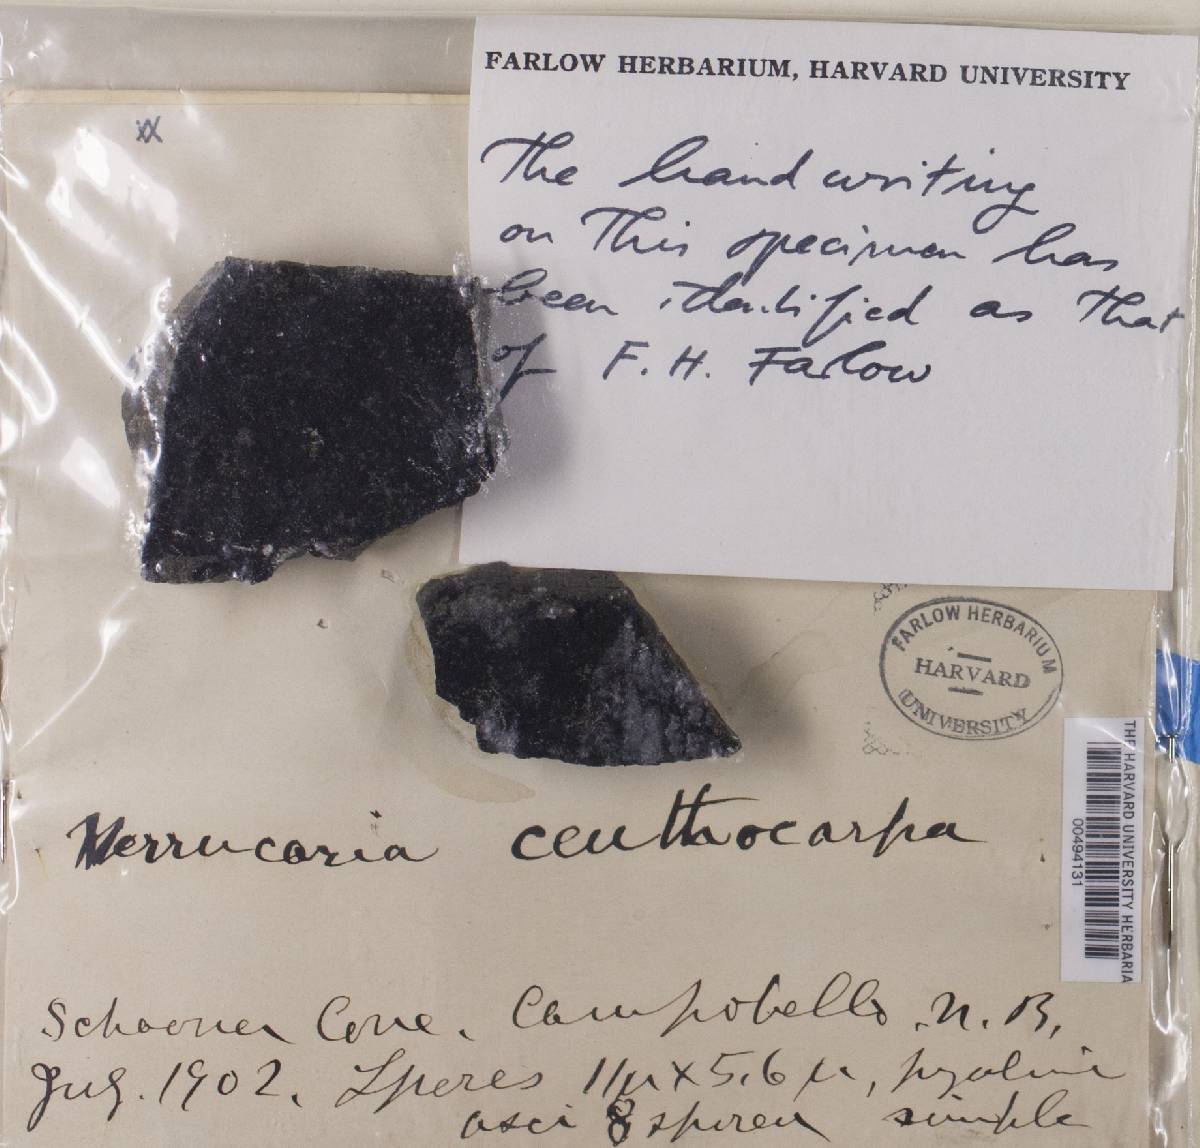 FARLOW HERBARIUM, HARVARD UNIVERSITY
XX
The handwriting
on This specimen has
been identified as That
of F. H. Farlow
FARLOW HERBARIUM
HARVARD
UNIVERSITY
THE HARVARD UNIVERSITY HERBARIA
00494131
Verrucaria ceuthocarpa
Schooner Cove. Campobello, N. B,
1902. Spores 11µ x 5.6 µ, hyaline
asci 8 spored simple